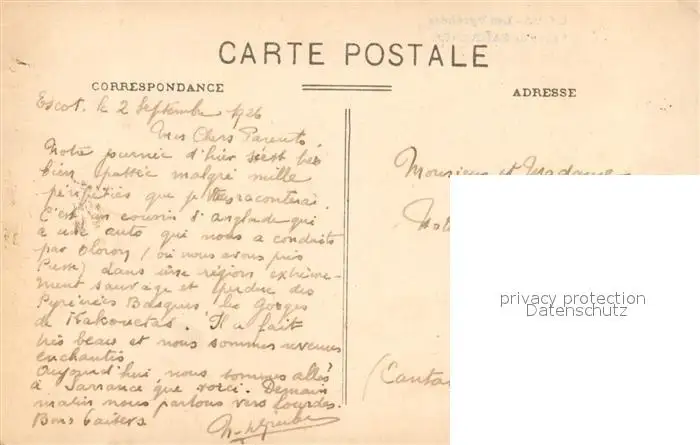 CARTE POSTALE
CORRESPONDANCE
ADRESSE
Escot. le 2 Septembre 1926
Mes Chers Parents,
Notre journée d'hier s'est très
bien passée malgré mille
péripéties que je raconterai.
C'est un cousin d'
a une auto qui nous a conduits
par Oloron (où nous avons pris
Pierre) dans une région extrême-
ment sauvage et perdue des
Pyrénées Basques les Gorges
de Kakouetas. Il a fait
très beau et nous sommes revenues
enchantés
Aujourd'hui nous sommes allés
à Sarrance que voici. Demain
matin nous partons vers Lourdes.
Bons baisers
Monsieur et Madame
(Canta
privacy protection
Datenschutz